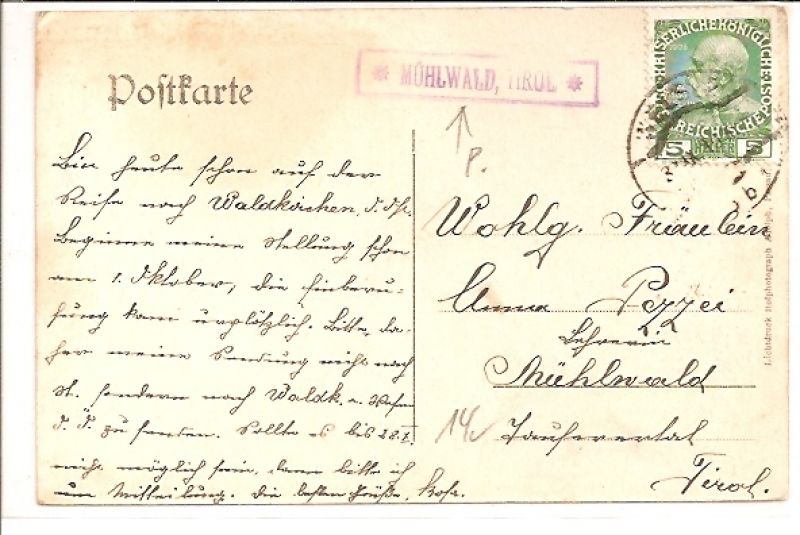 Postkarte
* MÜHLWALD, TIROL *
P.
KAISERLICHE KÖNIGLICHE ÖSTERREICHISCHE POST
1908
5 HELLER 5
Bin heute schon auf der
Reise nach Waldkirchen,
Beginne meine Stellung schon
am 1. Oktober, die Einberu-
fung kam urplötzlich. Bitte, da-
her meine Sendung nicht nach
St. sondern nach Waldk. a. Wesen
O. Ö. zu senden. Sollte es bis 28.
nicht möglich sein, dann bitte ich
um Mitteilung. Die besten Grüße,
Wohlg. Fräulein
Anna Pezzei
Lehrerin
Mühlwald
14
Taufverertal
Tirol.
Lichtdruck Hofphotograph